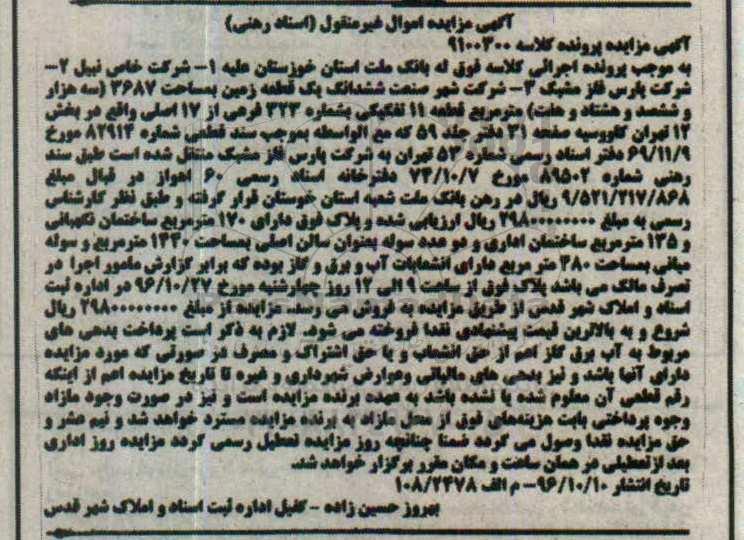 آگهی مزایده اموال غیرمنقول (اسناد رهنی)
آگهی مزایده پرونده کلاسه ۹۱۰۰۳۰۰
به موجب پرونده اجرائی کلاسه فوق له بانک ملت استان خوزستان علیه ۱- شرکت خاص نبیل ۲-
شرکت پارس فلز مشبک ۳- شرکت شهر صنعت ششدانگ یک قطعه زمین بمساحت ۳۶۸۷ (سه هزار
و ششصد و هشتاد و هفت) مترمربع قطعه ۱۱ تفکیکی بشماره ۳۲۳ فرعی از ۱۷ اصلی واقع در بخش
۱۲ تهران کاروسیه صفحه ۳۱ دفتر جلد ۵۹ که مع الواسطه بموجب سند قطعی شماره ۸۲۹۱۴ مورخ
۶۹/۱۱/۹ دفتر اسناد رسمی شماره ۵۳ تهران به شرکت پارس فلز مشبک منتقل شده است طبق سند
رهنی شماره ۸۹۵۰۲ مورخ ۷۴/۱۰/۷ دفترخانه اسناد رسمی ۶۰ اهواز در قبال مبلغ
۹/۵۲۱/۳۱۷/۸۶۸ ریال در رهن بانک ملت شعبه استان خوستان قرار گرفته و طبق نظر کارشناس
رسمی به مبلغ ۲۹۸۰۰۰۰۰۰۰۰ ریال ارزیابی شده و پلاک فوق دارای ۱۷۰ مترمربع ساختمان نگهبانی
و ۱۲۵ مترمربع ساختمان اداری و دو عدد سوله بعنوان سالن اصلی بمساحت ۱۴۴۰ مترمربع و سوله
میانی بمساحت ۴۸۰ متر مربع دارای انشعابات آب و برق و گاز بوده که برابر گزارش مامور اجرا در
تصرف مالک می باشد پلاک فوق از ساعت ۹ الی ۱۲ روز چهارشنبه مورخ ۹۶/۱۰/۲۷ در اداره ثبت
اسناد و املاک شهر قدس از طریق مزایده به فروش می رسد. مزایده از مبلغ ۲۹۸۰۰۰۰۰۰۰۰ ریال
شروع و به بالاترین قیمت پیشنهادی نقدا فروخته می شود. لازم به ذکر است پرداخت بدهی های
مربوط به آب برق گاز اعم از حق انشعاب و یا حق اشتراک و مصرف در صورتی که مورد مزایده
دارای آنها باشد و نیز بدهی های مالیاتی وعوارض شهرداری و غیره تا تاریخ مزایده اعم از اینکه
رقم قطعی آن معلوم شده یا نشده باشد به عهده برنده مزایده است و نیز در صورت وجود مازاد
وجوه پرداختی بابت هزینه‌های فوق از محل مازاد به برنده مزایده مسترد خواهد شد و نیم عشر و
حق مزایده نقدا وصول می گردد ضمنا چنانچه روز مزایده تعطیل رسمی گردد مزایده روز اداری
بعد ازتعطیلی در همان ساعت و مکان مقرر برگزار خواهد شد.
تاریخ انتشار ۹۶/۱۰/۱۰- م الف ۱۰۸/۲۴۷۸
بهروز حسین زاده - کفیل اداره ثبت اسناد و املاک شهر قدس